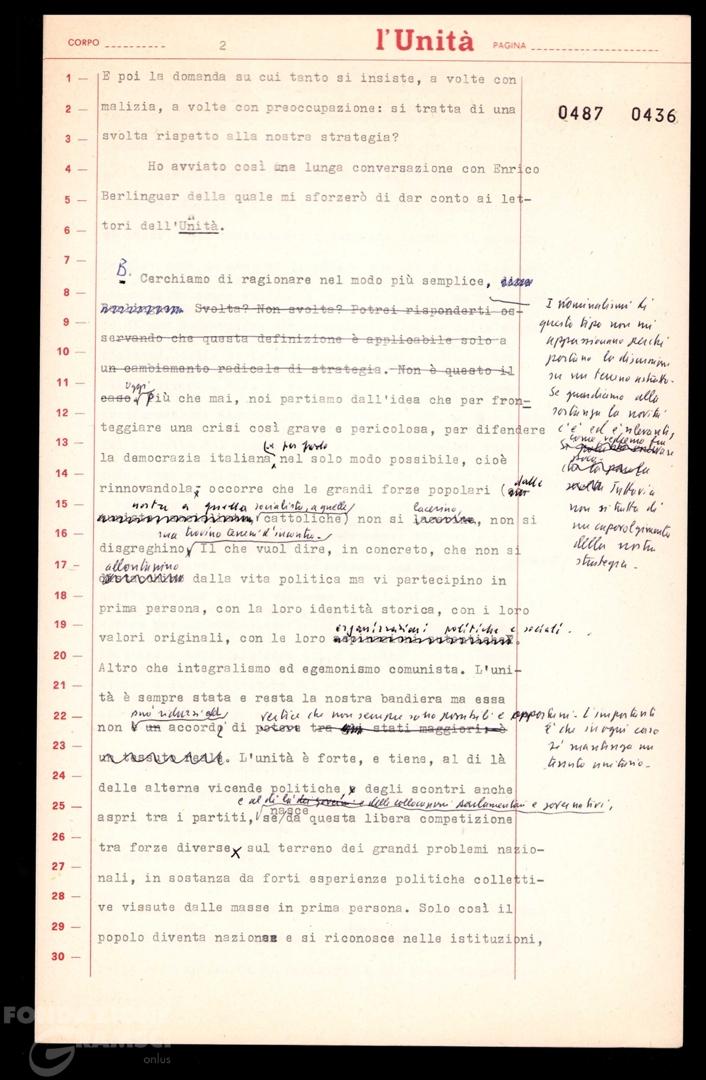 CORPO
2
l'Unità
PAGINA
0487 0436
1 — E poi la domanda su cui tanto si insiste, a volte con
2 — malizia, a volte con preoccupazione: si tratta di una
3 — svolta rispetto alla nostra strategia?
4 — Ho avviato così una lunga conversazione con Enrico
5 — Berlinguer della quale mi sforzerò di dar conto ai let-
6 — tori dell'Unità.
7 —
B. Cerchiamo di ragionare nel modo più semplice,
8 —
Svolta? Non svolta? Potrei risponderti os-
9 — servando che questa definizione è applicabile solo a
10 — un cambiamento radicale di strategia. Non è questo il
11 — caso. Oggi
12 — Più che mai, noi partiamo dall'idea che per fron-
teggiare una crisi così grave e pericolosa, per difendere
13 — e per
la democrazia italiana, nel solo modo possibile, cioè
14 — rinnovandola, occorre che le grandi forze popolari (dalle
15 — nostre a quelle socialiste, a quelle
cattoliche) non si lacerino, non si
16 — ma trovino terreni d'incontro.
disgreghino. Il che vuol dire, in concreto, che non si
17 — allontanino
dalla vita politica ma vi partecipino in
18 — prima persona, con la loro identità storica, con i loro
19 — organizzazioni politiche e sociali.
valori originali, con le loro
20 — Altro che integralismo ed egemonismo comunista. L'uni-
21 — tà è sempre stata e resta la nostra bandiera ma essa
22 — può ridursi ad vertice che non sempre sono possibili e opportuni. L'importante
non un accordi di potere tra stati maggiori: è
23 — un tessuto
L'unità è forte, e tiene, al di là
24 — delle alterne vicende politiche, degli scontri anche
25 — e al di là e delle collocazioni parlamentari e governative,
aspri tra i partiti, se nasce da questa libera competizione
26 — tra forze diverse sul terreno dei grandi problemi nazio-
27 — nali, in sostanza da forti esperienze politiche colletti-
28 — ve vissute dalle masse in prima persona. Solo così il
29 — popolo diventa nazione e si riconosce nelle istituzioni,
30 —
I nominalismi di
questo tipo non mi
appassionano perché
portano la discussione
su un terreno astratto.
Se guardiamo alla
sostanza la novità
c'è ed è rilevante,
come vedremo fra
poco.
Tuttavia
non si tratta di
un capovolgimento
della nostra
strategia.
è che in ogni caso
si mantenga un
tessuto unitario.
FONDAZIONE
GRAMSCI
onlus